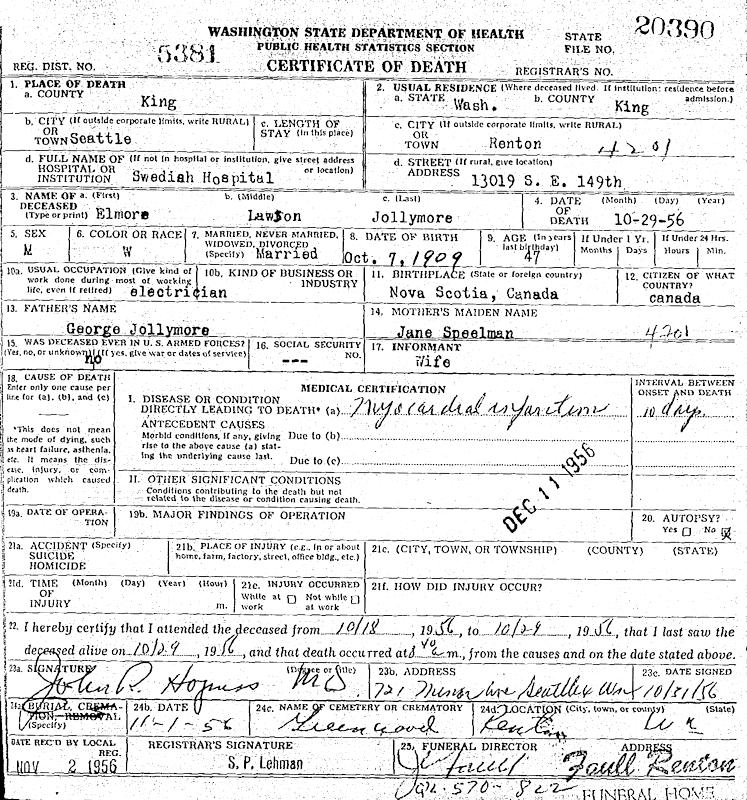 WASHINGTON STATE DEPARTMENT OF HEALTH
PUBLIC HEALTH STATISTICS SECTION
CERTIFICATE OF DEATH
STATE FILE NO. 20390
REG. DIST. NO. 5381
REGISTRAR'S NO.
1. PLACE OF DEATH
a. COUNTY
King
2. USUAL RESIDENCE (Where deceased lived. If institution: residence before admission.)
a. STATE Wash. b. COUNTY King
b. CITY (If outside corporate limits, write RURAL)
OR
TOWN Seattle
c. LENGTH OF STAY (in this place)
c. CITY (If outside corporate limits, write RURAL)
OR
TOWN Renton 4201
d. FULL NAME OF (If not in hospital or institution, give street address or location)
HOSPITAL OR
INSTITUTION Swedish Hospital
d. STREET (If rural, give location)
ADDRESS
13019 S. E. 149th
3. NAME OF DECEASED (Type or print)
a. (First) b. (Middle) c. (Last)
Elmore Lawson Jollymore
4. DATE OF DEATH (Month) (Day) (Year)
10-29-56
5. SEX
M
6. COLOR OR RACE
W
7. MARRIED, NEVER MARRIED, WIDOWED, DIVORCED (Specify) Married
8. DATE OF BIRTH
Oct. 7, 1909
9. AGE (In years last birthday)
47
If Under 1 Yr. Months Days
If Under 24 Hrs. Hours Min.
10a. USUAL OCCUPATION (Give kind of work done during most of working life, even if retired)
electrician
10b. KIND OF BUSINESS OR INDUSTRY
11. BIRTHPLACE (State or foreign country)
Nova Scotia, Canada
12. CITIZEN OF WHAT COUNTRY?
canada
13. FATHER'S NAME
George Jollymore
14. MOTHER'S MAIDEN NAME
Jane Speelman 4201
15. WAS DECEASED EVER IN U. S. ARMED FORCES?
(Yes, no, or unknown) (If yes, give war or dates of service)
no
16. SOCIAL SECURITY NO.
---
17. INFORMANT
Wife
18. CAUSE OF DEATH
Enter only one cause per line for (a), (b), and (c)
*This does not mean the mode of dying, such as heart failure, asthenia, etc. It means the disease, injury, or complication which caused death.
MEDICAL CERTIFICATION
INTERVAL BETWEEN ONSET AND DEATH
I. DISEASE OR CONDITION
DIRECTLY LEADING TO DEATH* (a) Myocardial infarction 10 days
ANTECEDENT CAUSES
Morbid conditions, if any, giving rise to the above cause (a) stating the underlying cause last.
Due to (b)
Due to (c)
II. OTHER SIGNIFICANT CONDITIONS
Conditions contributing to the death but not related to the disease or condition causing death.
DEC 11 1956
19a. DATE OF OPERATION
19b. MAJOR FINDINGS OF OPERATION
20. AUTOPSY?
Yes No
21a. ACCIDENT (Specify)
SUICIDE
HOMICIDE
21b. PLACE OF INJURY (e.g., in or about home, farm, factory, street, office bldg., etc.)
21c. (CITY, TOWN, OR TOWNSHIP) (COUNTY) (STATE)
21d. TIME OF INJURY (Month) (Day) (Year) (Hour) m.
21e. INJURY OCCURRED
While at work Not while at work
21f. HOW DID INJURY OCCUR?
22. I hereby certify that I attended the deceased from 10/18, 1956, to 10/29, 1956, that I last saw the
deceased alive on 10/29, 1956, and that death occurred at m., from the causes and on the date stated above.
23a. SIGNATURE (Degree or title)
John R. M D
23b. ADDRESS
721 Minor Ave Seattle Wn
23c. DATE SIGNED
10/31/56
24a. BURIAL, CREMATION, REMOVAL (Specify)
24b. DATE
11-1-56
24c. NAME OF CEMETERY OR CREMATORY
Greenwood
24d. LOCATION (City, town, or county) (State)
Renton Wn
DATE REC'D BY LOCAL REG.
NOV 2 1956
REGISTRAR'S SIGNATURE
S. P. Lehman
25. FUNERAL DIRECTOR
Faull
ADDRESS
Faull Renton
FUNERAL HOME